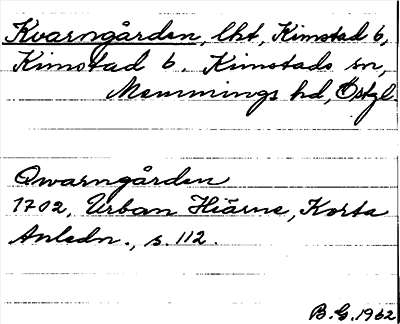 Kvarngården, lht, Kimstad 6,
Kimstad 6. Kimstads sn,
Memmings hd, Östgl.
Qwarngården
1702, Urban Hiärne, Korta
Anledn., s. 112.
B.G. 1962